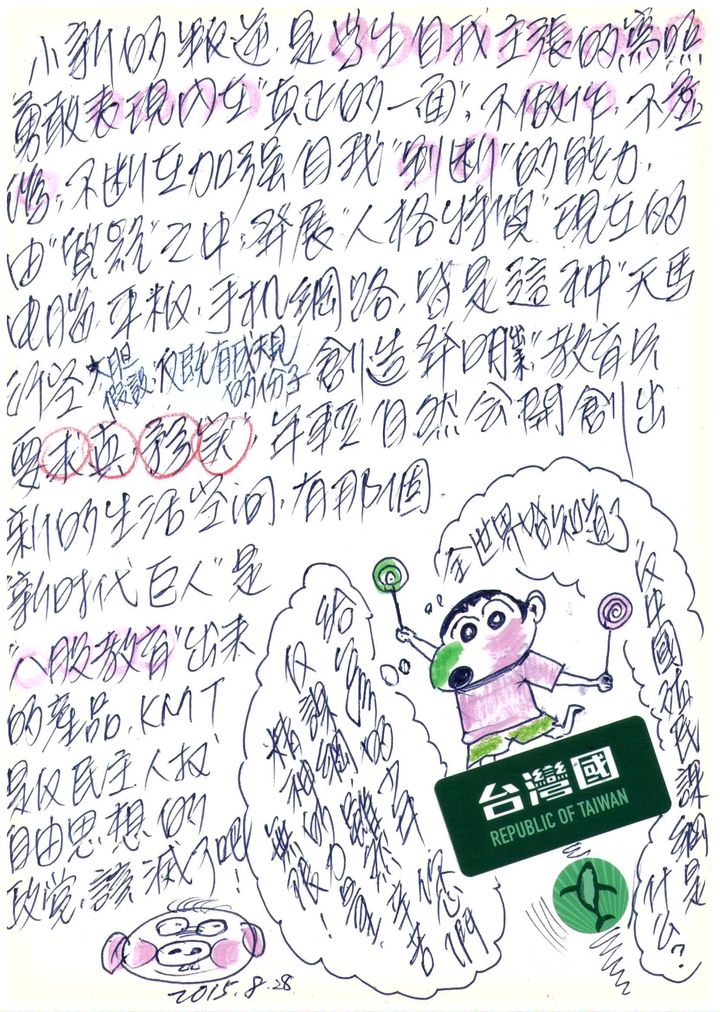 小新的叛逆,是学生自我主張的寫照
勇敢表現內在"真正的一面",不做作,不虛
偽,不断在加强自我"判断"的能力,
由"質疑"之中,發展"人格特質"現在的
电腦,平板,手机網路,皆是這种"天馬
行空 大胆假設,反既有成規的份子 創造發明業"教育只
要"求真,務实",年輕自然会開創出
新的生活空间,有那個
"新时代巨人"是
"八股教育"出來
的產品,KMT
是反民主人权,
自由思想的
政党,該滅了吧!
全世界皆知道了
"反中國殖民課綱是
什么?
給
反課綱的
精神的
無限
您們
台灣國
REPUBLIC OF TAIWAN
2015.8.28